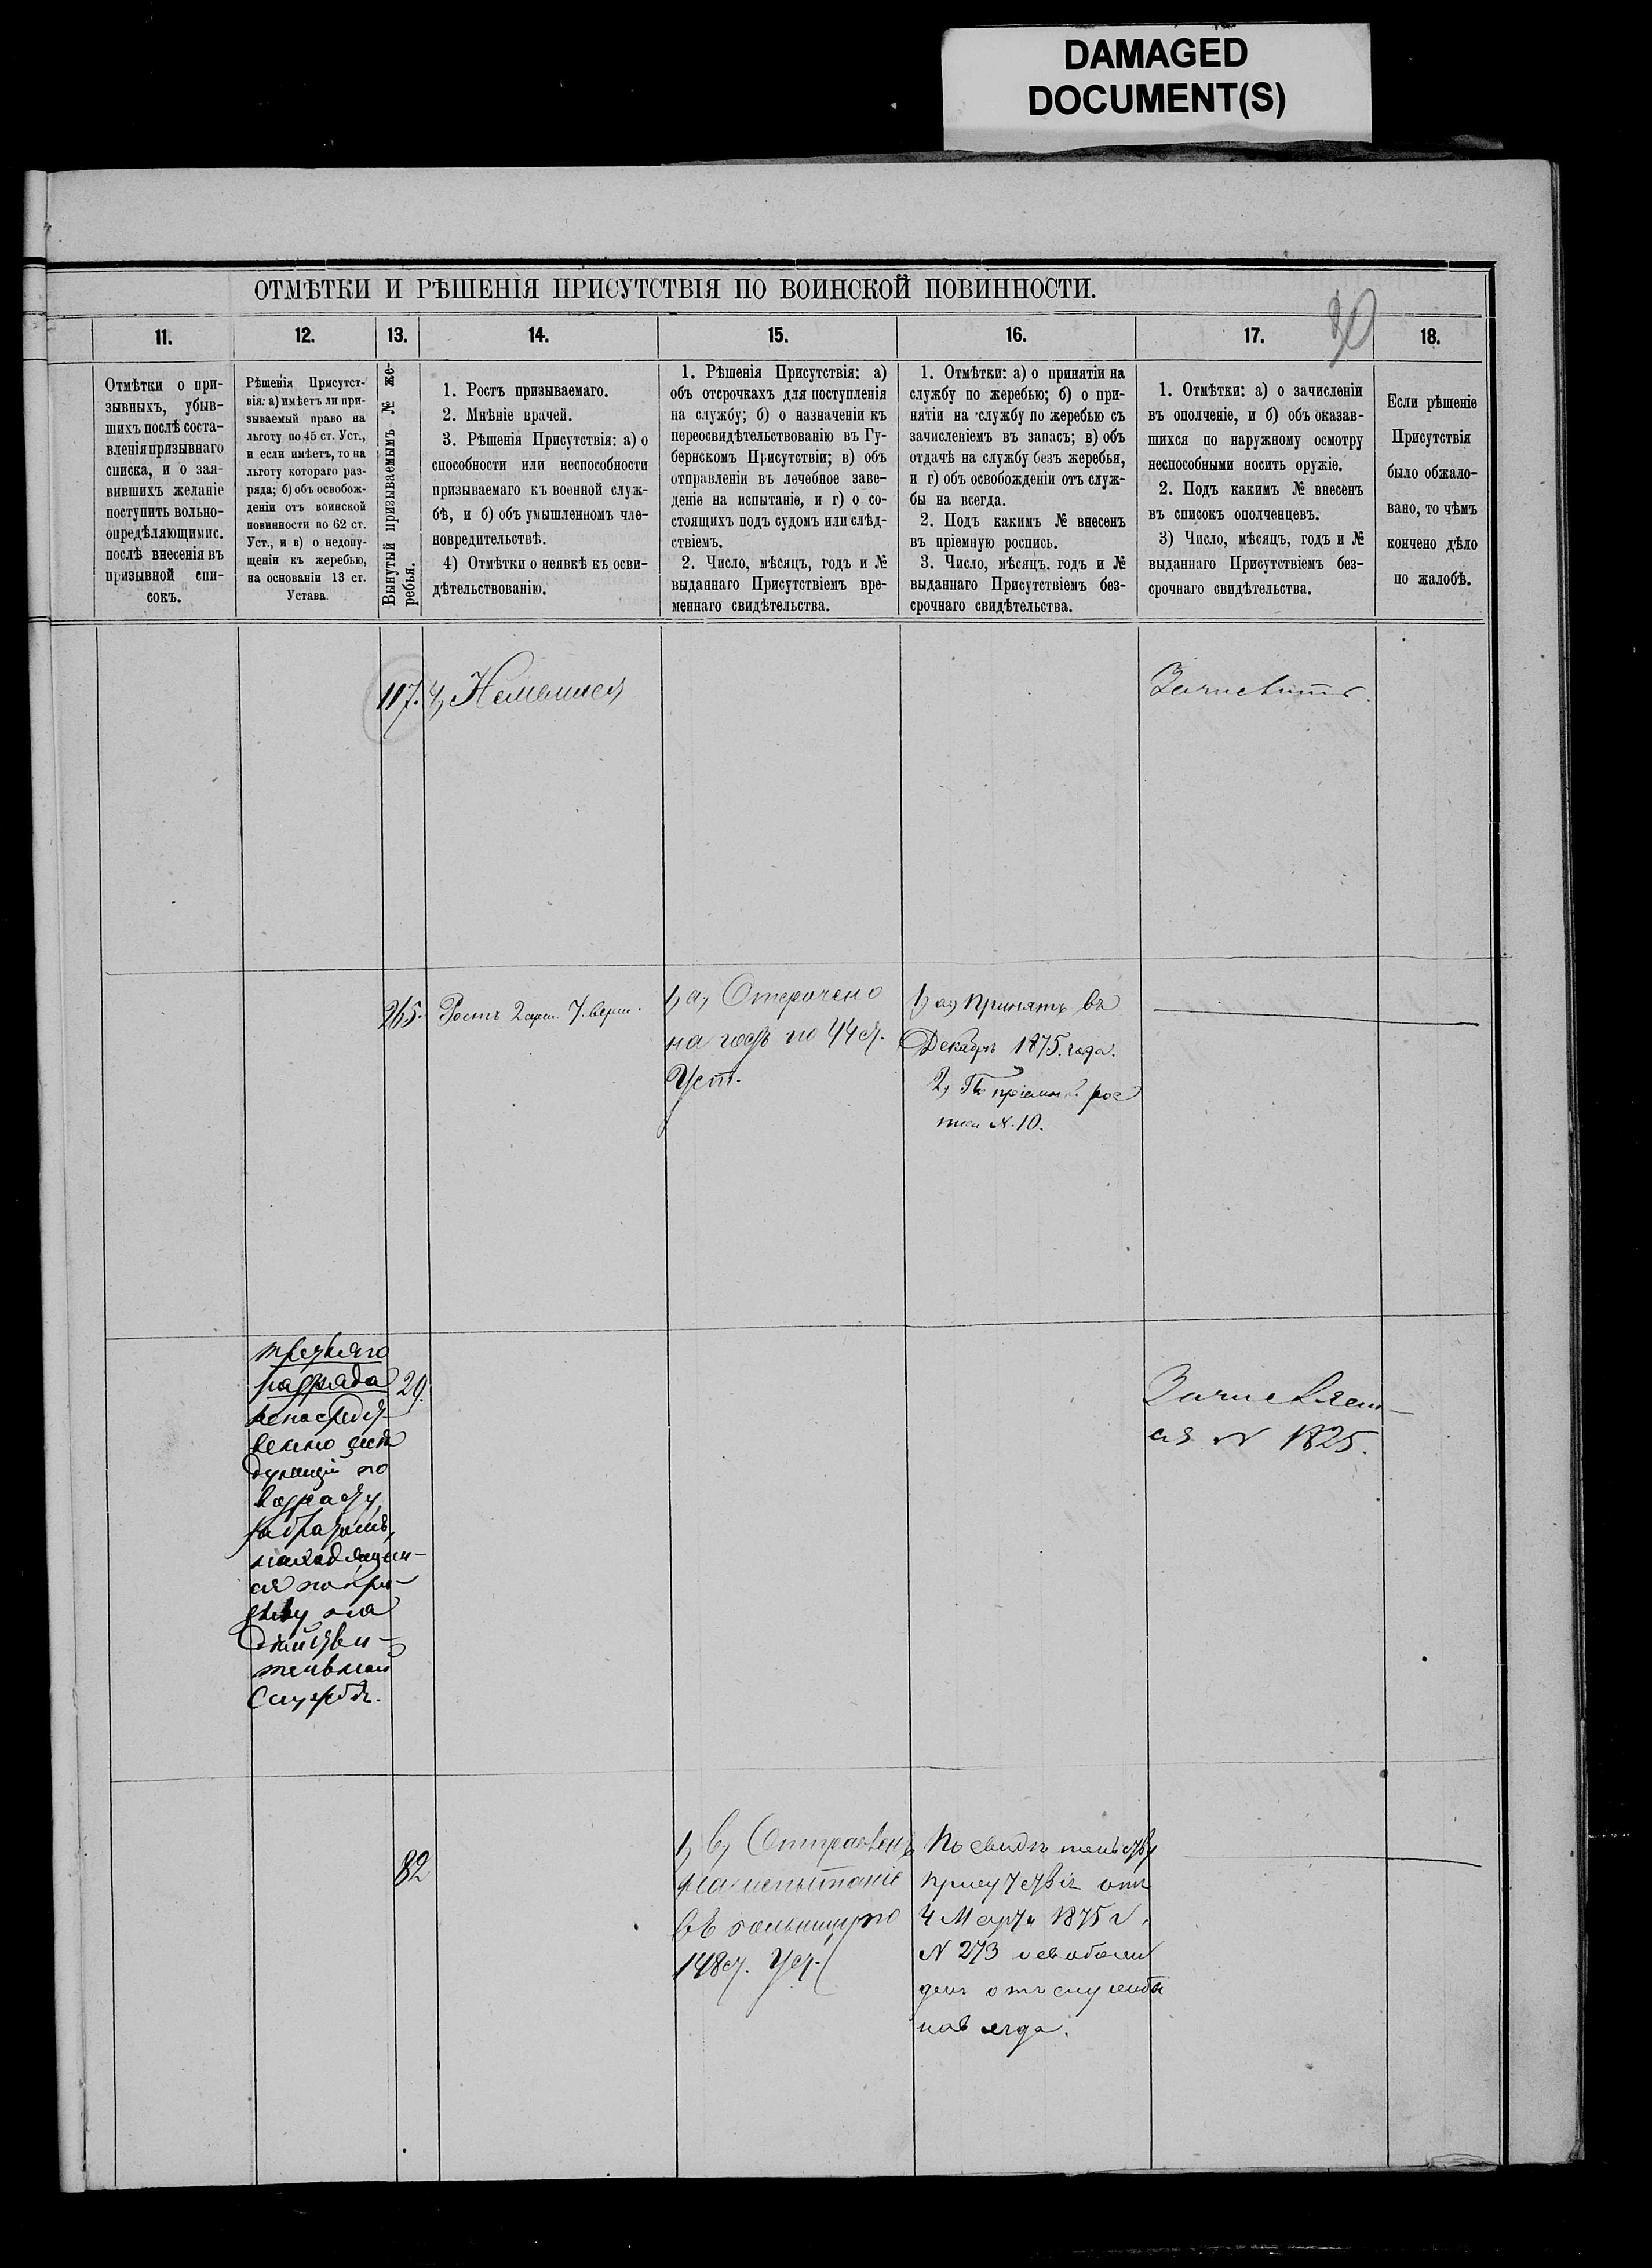 DAMAGED
DOCUMENT(S)
ОТМѢТКИ И РѢШЕНІЯ ПРИСУТСТВІЯ ПО ВОИНСКОЙ ПОВИННОСТИ.
30
11.
12.
13.
14.
15.
16.
17.
18.
Отмѣтки о при-
зывныхъ, убыв-
шихъ послѣ соста-
вленія призывнаго
списка, и о зая-
вившихъ желаніе
поступить вольно-
опредѣляющимис.
послѣ внесенія въ
призывной спи-
сокъ.
Рѣшенія Присутст-
вія: а) имѣетъ ли при-
зываемый право на
льготу по 45 ст. Уст.,
и если имѣетъ, то на
льготу котораго раз-
ряда; б) объ освобож-
деніи отъ воинской
повинности по 62 ст.
Уст., и в) о недопу-
щеніи къ жеребью,
на основаніи 13 ст.
Устава.
Вынутый призываемымъ № же-
ребья.
1. Ростъ призываемаго.
2. Мнѣніе врачей.
3. Рѣшенія Присутствія: а) о
способности или неспособности
призываемаго къ военной служ-
бѣ, и б) объ умышленномъ чле-
новредительствѣ.
4) Отмѣтки о неявкѣ къ осви-
дѣтельствованію.
1. Рѣшенія Присутствія: а)
объ отсрочкахъ для поступленія
на службу; б) о назначеніи къ
переосвидѣтельствованію въ Гу-
бернскомъ Присутствіи; в) объ
отправленіи въ лечебное заве-
деніе на испытаніе, и г) о со-
стоящихъ подъ судомъ или слѣд-
ствіемъ.
2. Число, мѣсяцъ, годъ и №
выданнаго Присутствіемъ вре-
меннаго свидѣтельства.
1. Отмѣтки: а) о принятіи на
службу по жеребью; б) о при-
нятіи на службу по жеребью съ
зачисленіемъ въ запасъ; в) объ
отдачѣ на службу безъ жеребья,
и г) объ освобожденіи отъ служ-
бы на всегда.
2. Подъ какимъ № внесенъ
въ пріемную роспись.
3. Число, мѣсяцъ, годъ и №
выданнаго Присутствіемъ без-
срочнаго свидѣтельства.
1. Отмѣтки: а) о зачисленіи
въ ополченіе, и б) объ оказав-
шихся по наружному осмотру
неспособными носить оружіе.
2. Подъ какимъ № внесенъ
въ списокъ ополченцевъ.
3) Число, мѣсяцъ, годъ и №
выданнаго Присутствіемъ без-
срочнаго свидѣтельства.
Если рѣшеніе
Присутствія
было обжало-
вано, то чѣмъ
кончено дѣло
по жалобѣ.
117.
4,
Зачислить.
265.
Ростъ 2 арш. 7. верш.
1, а, Отсрочено
на годъ по 44 ст.
Уст.
1, а, Принятъ въ
Декабрѣ 1875. года.
2, По пріемной рос
писи №. 10.
третьяго
разряда
непосредст
венно слѣ
дующій по
возрасту
за братомъ,
находящим-
ся по при-
зыву на
дѣйстви-
тельной
Службѣ.
29.
Зачисляет-
ся N 1825.
82
1, в, Отправленъ
на испытаніе
въ больницу по
148 ст. Уст.
По свидѣтельству
присутствія отъ
4 Марта 1875 г.
N 273 освобож
денъ отъ службы
навсегда.